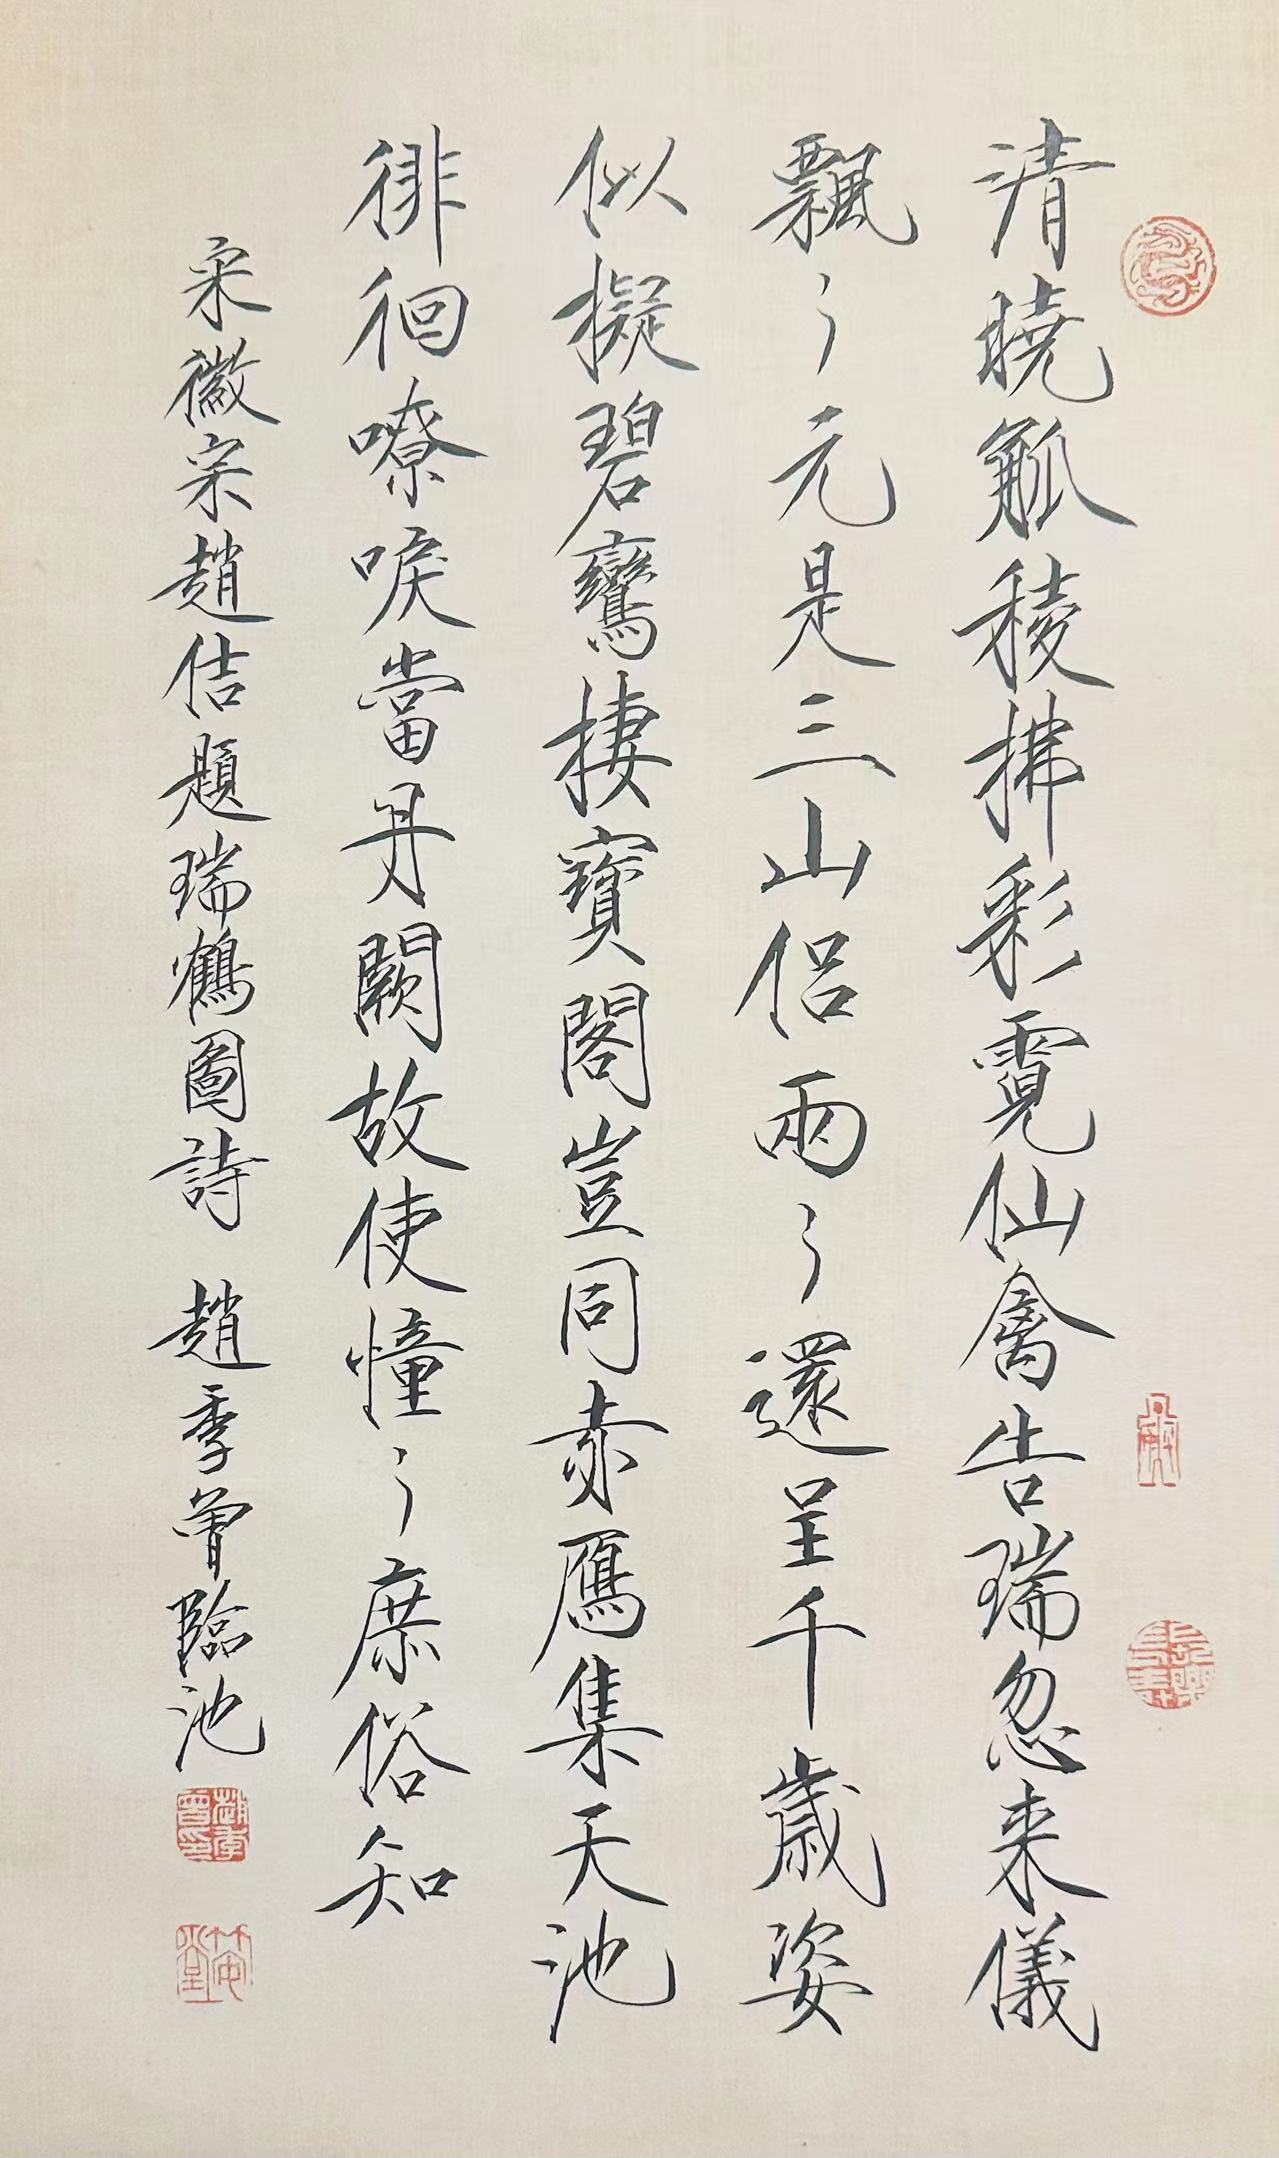 清曉觚稜拂彩霓仙禽告瑞忽来儀
飄〻元是三山侣兩〻還呈千歲姿
似擬碧鸞棲寶閣豈同赤鴈集天池
徘徊嘹唳當丹闕故使憧〻庶俗知
宋徽宗趙佶題瑞鶴圖詩 趙季曾臨池
趙季曾印